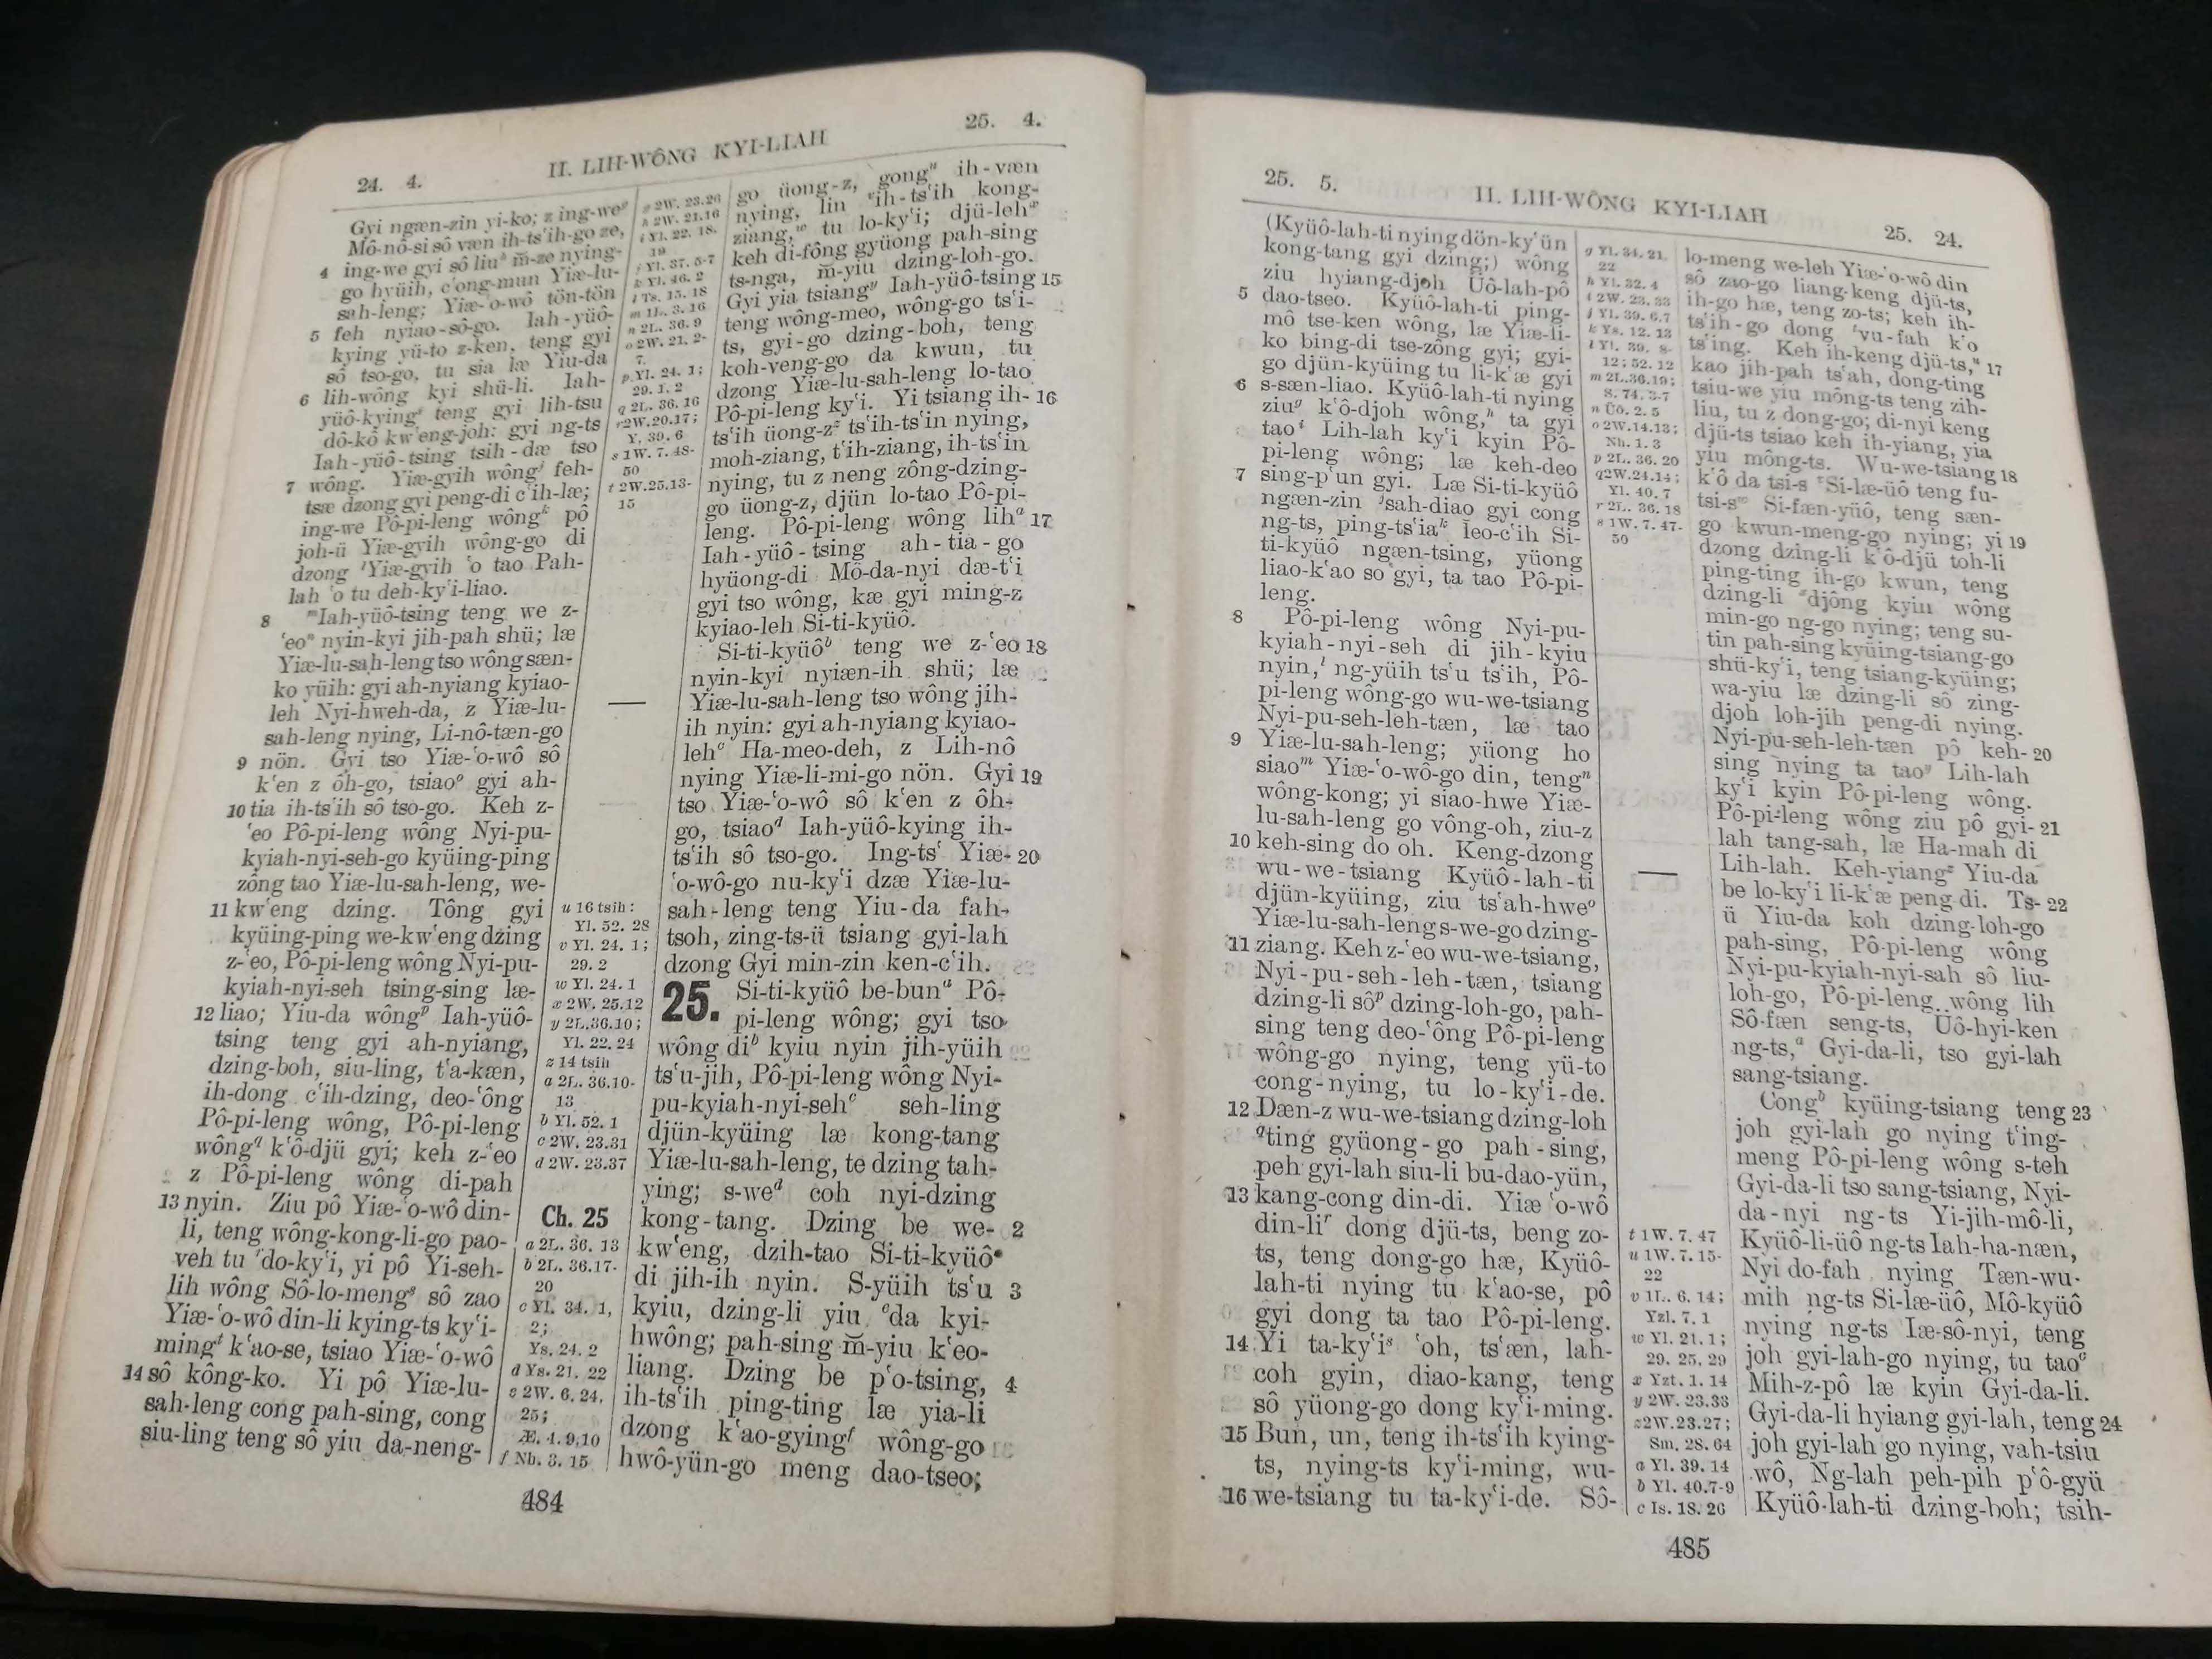 24. 4.
II. LIH-WÔNG KYI-LIAH
25. 4.
Gyi ngæn-zin yi-ko; z ing-we
Mô-nô-si sô væn ih-ts‘ih-go ze,
4 ing-we gyi sô liu m̆-ze nying-
go hyüih, c‘ong-mun Yiæ-lu-
sah-leng; Yiæ-‘o-wô tön-tön
5 feh nyiao-sô-go. Iah-yüô-
kying yü-to z-ken, teng gyi
sô tso-go, tu sia læ Yiu-da
6 lih-wông kyi shü-li. Iah-
yüô-kying teng gyi lih-tsu
dô-kô kw‘eng-joh: gyi ng-ts
Iah-yüô-tsing tsih-dæ tso
7 wông. Yiæ-gyih wông feh-
tsæ dzong gyi peng-di c‘ih-læ;
ing-we Pô-pi-leng wông pô
joh-ü Yiæ-gyih wông-go di
dzong Yiæ-gyih ‘o tao Pah-
lah ‘o tu deh-ky‘i-liao.
8 Iah-yüô-tsing teng we z-
‘eo nyin-kyi jih-pah shü; læ
Yiæ-lu-sah-leng tso wông sæn-
ko yüih: gyi ah-nyiang kyiao-
leh Nyi-hweh-da, z Yiæ-lu-
sah-leng nying, Li-nô-tæn-go
9 nön. Gyi tso Yiæ-‘o-wô sô
k‘en z ôh-go, tsiao gyi ah-
10 tia ih-ts‘ih sô tso-go. Keh z-
‘eo Pô-pi-leng wông Nyi-pu-
kyiah-nyi-seh-go kyüing-ping
zông tao Yiæ-lu-sah-leng, we-
11 kw‘eng dzing. Tông gyi
kyüing-ping we-kw‘eng dzing
z-‘eo, Pô-pi-leng wông Nyi-pu-
kyiah-nyi-seh tsing-sing læ-
12 liao; Yiu-da wông Iah-yüô-
tsing teng gyi ah-nyiang,
dzing-boh, siu-ling, t‘a-kæn,
ih-dong c‘ih-dzing, deo-‘ông
Pô-pi-leng wông, Pô-pi-leng
wông k‘ô-djü gyi; keh z-‘eo
z Pô-pi-leng wông di-pah
13 nyin. Ziu pô Yiæ-‘o-wô din-
li, teng wông-kong-li-go pao-
veh tu do-ky‘i, yi pô Yi-seh-
lih wông Sô-lo-meng sô zao
Yiæ-‘o-wô din-li kying-ts ky‘i-
ming k‘ao-se, tsiao Yiæ-‘o-wô
14 sô kông-ko. Yi pô Yiæ-lu-
sah-leng cong pah-sing, cong
siu-ling teng sô yiu da-neng-
g 2W. 23.26
h 2W. 21.16
i Yl. 22. 18.
19
j Yl. 37. 5-7
k Yl. 46. 2
l Ts. 15. 18
m 1L. 3. 16
n 2L. 36. 9
o 2W. 21. 2-
7.
p Yl. 24. 1;
29. 1. 2
q 2L. 36. 16
r 2W. 20.17;
Y. 39. 6
s 1W. 7. 48-
50
t 2W.25.13-
15
u 16 tsih:
Yl. 52. 28
v Yl. 24. 1;
29. 2
w Yl. 24. 1
x 2W. 25.12
y 2L.36.10;
Yl. 22. 24
z 14 tsih
a 2L. 36.10-
13
b Yl. 52. 1
c 2W. 23.31
d 2W. 23.37
Ch. 25
a 2L. 36. 13
b 2L. 36.17-
20
c Yl. 34. 1,
2;
Ys. 24. 2
d Ys. 21. 22
e 2W. 6. 24,
25;
Æ. 4. 9,10
f Nh. 3. 15
go üong-z, gong ih-væn
nying, lin ih-ts‘ih kong-
ziang, tu lo-ky‘i; djü-leh
keh di-fông gyüong pah-sing
ts-nga, m̆-yiu dzing-loh-go.
Gyi yia tsiang Iah-yüô-tsing 15
teng wông-meo, wông-go ts‘i-
ts, gyi-go dzing-boh, teng
koh-veng-go da kwun, tu
dzong Yiæ-lu-sah-leng lo-tao
Pô-pi-leng ky‘i. Yi tsiang ih- 16
ts‘ih üong-z ts‘ih-ts‘in nying,
moh-ziang, t‘ih-ziang, ih-ts‘in
nying, tu z neng zông-dzing-
go üong-z, djün lo-tao Pô-pi-
leng. Pô-pi-leng wông lih 17
Iah-yüô-tsing ah-tia-go
hyüong-di Mô-da-nyi dæ-t‘i
gyi tso wông, kæ gyi ming-z
kyiao-leh Si-ti-kyüô.
Si-ti-kyüô teng we z-‘eo 18
nyin-kyi nyiæn-ih shü; læ
Yiæ-lu-sah-leng tso wông jih-
ih nyin: gyi ah-nyiang kyiao-
leh Ha-meo-deh, z Lih-nô
nying Yiæ-li-mi-go nön. Gyi 19
tso Yiæ-‘o-wô sô k‘en z ôh-
go, tsiao Iah-yüô-kying ih-
ts‘ih sô tso-go. Ing-ts‘ Yiæ- 20
‘o-wô-go nu-ky‘i dzæ Yiæ-lu-
sah-leng teng Yiu-da fah-
tsoh, zing-ts-ü tsiang gyi-lah
dzong Gyi min-zin ken-c‘ih.
25. Si-ti-kyüô be-bun Pô-
pi-leng wông; gyi tso
wông di kyiu nyin jih-yüih
ts‘u-jih, Pô-pi-leng wông Nyi-
pu-kyiah-nyi-seh seh-ling
djün-kyüing læ kong-tang
Yiæ-lu-sah-leng, te dzing tah-
ying; s-we coh nyi-dzing
kong-tang. Dzing be we- 2
kw‘eng, dzih-tao Si-ti-kyüô
di jih-ih nyin. S-yüih ts‘u 3
kyiu, dzing-li yiu da kyi-
hwông; pah-sing m̆-yiu k‘eo-
liang. Dzing be p‘o-tsing, 4
ih-ts‘ih ping-ting læ yia-li
dzong k‘ao-gying wông-go
hwô-yün-go meng dao-tseo;
484
25. 5.
II. LIH-WÔNG KYI-LIAH
25. 24.
(Kyüô-lah-ti nying dön-ky‘ün
kong-tang gyi dzing;) wông
ziu hyiang-djoh Üô-lah-pô
5 dao-tseo. Kyüô-lah-ti ping-
mô tse-ken wông, læ Yiæ-li-
ko bing-di tse-zông gyi; gyi-
go djün-kyüing tu li-k‘æ gyi
6 s-sæn-liao. Kyüô-lah-ti nying
ziu k‘ô-djoh wông, ta gyi
tao Lih-lah ky‘i kyin Pô-
pi-leng wông; læ keh-deo
7 sing-p‘un gyi. Læ Si-ti-kyüô
ngæn-zin sah-diao gyi cong
ng-ts, ping-ts‘ia leo-c‘ih Si-
ti-kyüô ngæn-tsing, yüong
liao-k‘ao so gyi, ta tao Pô-pi-
leng.
8 Pô-pi-leng wông Nyi-pu-
kyiah-nyi-seh di jih-kyiu
nyin, ng-yüih ts‘u ts‘ih, Pô-
pi-leng wông-go wu-we-tsiang
Nyi-pu-seh-leh-tæn, læ tao
9 Yiæ-lu-sah-leng; yüong ho
siao Yiæ-‘o-wô-go din, teng
wông-kong; yi siao-hwe Yiæ-
lu-sah-leng go vông-oh, ziu-z
10 keh-sing do oh. Keng-dzong
wu-we-tsiang Kyüô-lah-ti
djün-kyüing, ziu ts‘ah-hwe
Yiæ-lu-sah-leng s-we-go dzing-
11 ziang. Keh z-‘eo wu-we-tsiang,
Nyi-pu-seh-leh-tæn, tsiang
dzing-li sô dzing-loh-go, pah-
sing teng deo-‘ông Pô-pi-leng
wông-go nying, teng yü-to
cong-nying, tu lo-ky‘i-de.
12 Dæn-z wu-we-tsiang dzing-loh
ting gyüong-go pah-sing,
peh gyi-lah siu-li bu-dao-yün,
13 kang-cong din-di. Yiæ ‘o-wô
din-li dong djü-ts, beng zo-
ts, teng dong-go hæ, Kyüô-
lah-ti nying tu k‘ao-se, pô
gyi dong ta tao Pô-pi-leng.
14 Yi ta-ky‘i ‘oh, ts‘æn, lah-
coh gyin, diao-kang, teng
sô yüong-go dong ky‘i-ming.
15 Bun, un, teng ih-ts‘ih kying-
ts, nying-ts ky‘i-ming, wu-
16 we-tsiang tu ta-ky‘i-de. Sô-
g Yl. 34. 21.
22
h Yl. 32. 4
i 2W. 23. 33
j Yl. 39. 6.7
k Ys. 12. 13
l Yl. 39. 8-
12; 52. 12
m 2L.36.19;
S. 74. 3-7
n Üô. 2. 5
o 2W.14.13;
Nh. 1. 3
p 2L. 36. 20
q2W.24.14;
Yl. 40. 7
r 2L. 36. 18
s 1W. 7. 47-
50
t 1W. 7. 47
u 1W. 7.15-
22
v 1L. 6. 14;
Yzl. 7. 1
w Yl. 21. 1;
29. 25. 29
x Yzt. 1. 14
y 2W. 23.33
z2W.23.27;
Sm. 28. 64
a Yl. 39. 14
b Yl. 40.7-9
c Is. 18. 26
lo-meng we-leh Yiæ-‘o-wô din
sô zao-go liang-keng djü-ts,
ih-go hæ, teng zo-ts; keh ih-
ts‘ih-go dong vu-fah k‘o
ts‘ing. Keh ih-keng djü-ts, 17
kao jih-pah ts‘ah, dong-ting
tsiu-we yiu mông-ts teng zih-
liu, tu z dong-go; di-nyi keng
djü-ts tsiao keh ih-yiang, yia
yiu mông-ts. Wu-we-tsiang 18
k‘ô da tsi-s Si-læ-üô teng fu-
tsi-s Si-fæn-yüô, teng sæn-
go kwun-meng-go nying; yi 19
dzong dzing-li k‘ô-djü toh-li
ping-ting ih-go kwun, teng
dzing-li djông kyin wông
min-go ng-go nying; teng su-
tin pah-sing kyüing-tsiang-go
shü-ky‘i, teng tsiang-kyüing;
wa-yiu læ dzing-li sô zing-
djoh loh-jih peng-di nying.
Nyi-pu-seh-leh-tæn pô keh- 20
sing nying ta tao Lih-lah
ky‘i kyin Pô-pi-leng wông.
Pô-pi-leng wông ziu pô gyi- 21
lah tang-sah, læ Ha-mah di
Lih-lah. Keh-yiang Yiu-da
be lo-ky‘i li-k‘æ peng di. Ts- 22
ü Yiu-da koh dzing-loh-go
pah-sing, Pô-pi-leng wông
Nyi-pu-kyiah-nyi-sah sô liu-
loh-go, Pô-pi-leng wông lih
Sô-fæn seng-ts, Üô-hyi-ken
ng-ts, Gyi-da-li, tso gyi-lah
sang-tsiang.
Cong kyüing-tsiang teng 23
joh gyi-lah go nying t‘ing-
meng Pô-pi-leng wông s-teh
Gyi-da-li tso sang-tsiang, Nyi-
da-nyi ng-ts Yi-jih-mô-li,
Kyüô-li-üô ng-ts Iah-ha-næn,
Nyi do-fah nying Tæn-wu-
mih ng-ts Si-læ-üô, Mô-kyüô
nying ng-ts Iæ-sô-nyi, teng
joh gyi-lah-go nying, tu tao
Mih-z-pô læ kyin Gyi-da-li.
Gyi-da-li hyiang gyi-lah, teng 24
joh gyi-lah go nying, vah-tsiu
wô, Ng-lah peh-pih p‘ô-gyü
Kyüô-lah-ti dzing-boh; tsih-
485